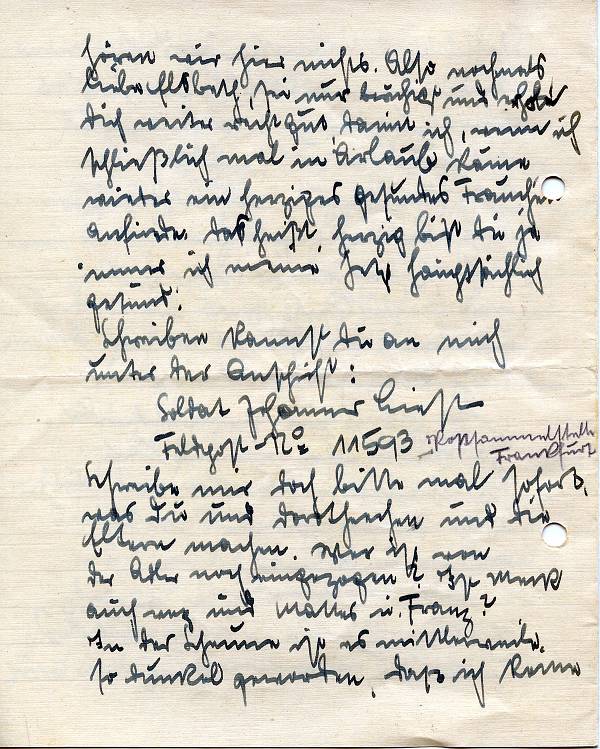 hören wir hier nichts. Also nochmals
liebe Elsbeth, sei nur und erhole
Dich weiter recht gut, damit ich, wenn ich
schließlich mal in Urlaub käme
wieder ein herziges gesundes Frauchen
anfinde. Das heißt, herzig bist Du ja
immer, ich meine jetzt hauptsächlich
gesund.
Schreiben kannst Du an mich
unter der Anschrift:
Soldat Johannes
Feldpost-No 11593 Postsammelstelle
Frankfurt
Schreibe mir doch bitte mal sofort,
was Du und Dorotheechen und die
Eltern machen. Wer ist von
der Adler noch eingezogen? Ist
auch weg und Mattes u. Franz?
In der Scheune ist es mittlerweile
so dunkel geworden, daß ich keine